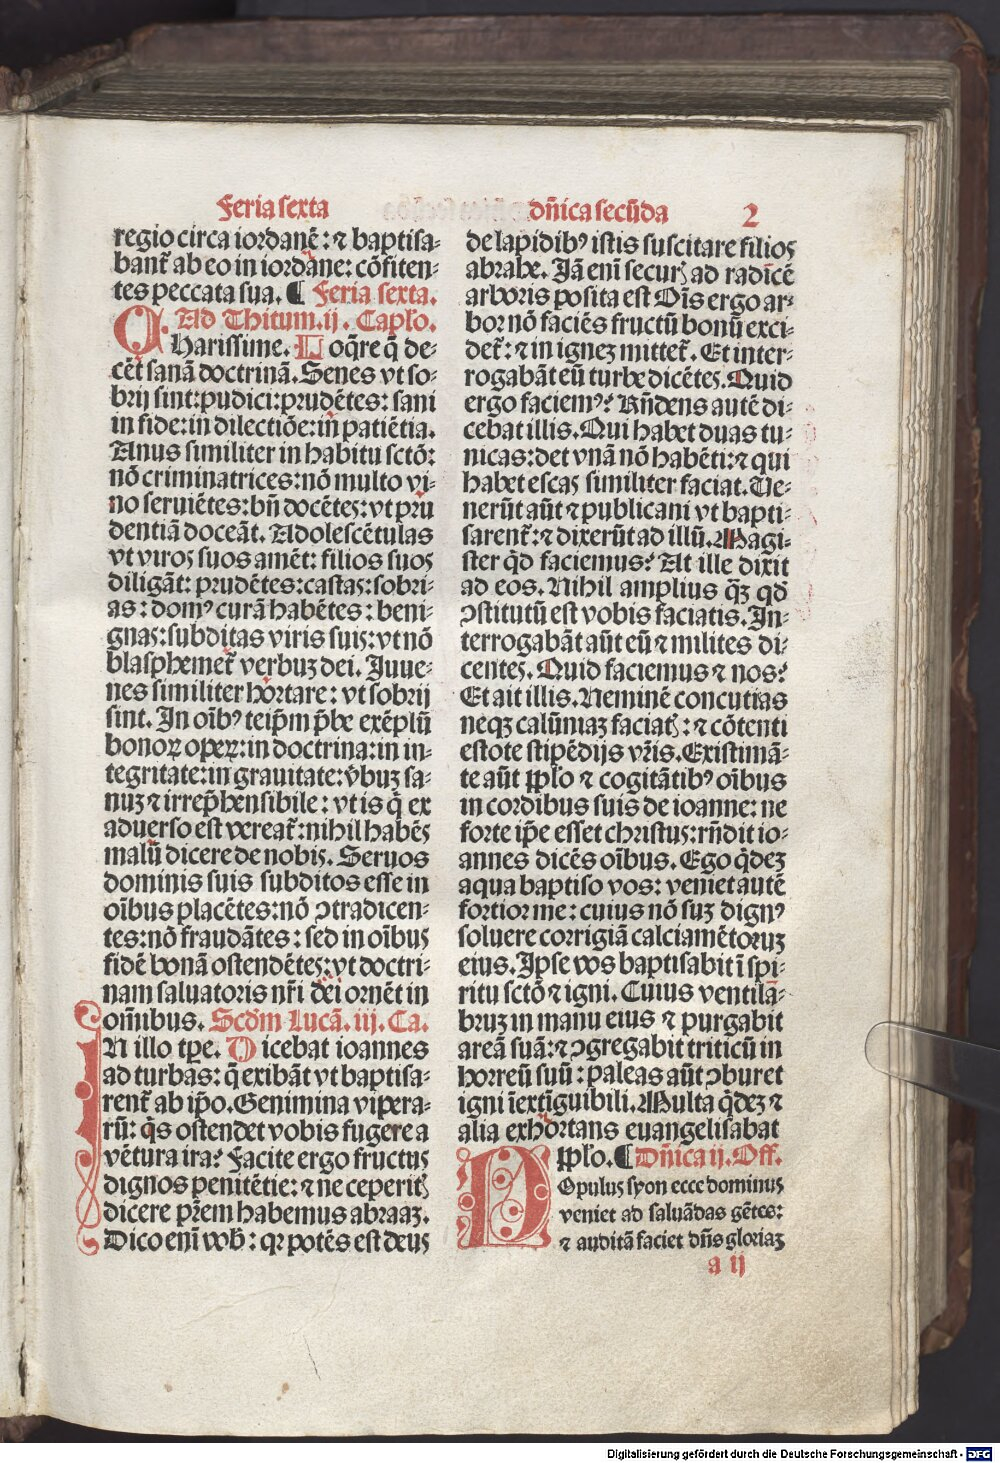 Feria sexta
dñica secũda
2
regio circa iordanẽ: ⁊ baptisa-
banť ab eo in iordane: cõfiten-
tes peccata sua. ¶ Feria sexta.
Ad Thitum. ij. Caplo.
CHarissime. Loq̃re q̃ de-
cẽt sanã doctrinã. Senes vt so-
brij sint: pudici: prudẽtes: sani
in fide: in dilectiõe: in patiẽtia.
Anus similiter in habitu sctõ:
nõ criminatrices: nõ multo vi-
no seruiẽtes: bñ docẽtes: vt pru
dentiã doceãt. Adolescẽtulas
vt viros suos amẽt: filios suos
diligãt: prudẽtes: castas: sobri-
as: domꝰ curã habẽtes: beni-
gnas: subditas viris suis: vt nõ
blasphemeť verbuꝫ dei. Juue-
nes similiter hortare: vt sobrij
sint. In oĩbꝰ teip̃m p̃be exẽplũ
bonoꝝ opeꝝ: in doctrina: in in-
tegritate: in grauitate: v̾buꝫ sa-
nuꝫ ⁊ irrep̃hensibile: vt is q̃ ex
aduerso est vereať: nihil habẽs
malũ dicere de nobis. Seruos
dominis suis subditos esse in
oĩbus placẽtes: nõ ↄtradicen-
tes: nõ fraudãtes: sed in oĩbus
fidẽ bonã ostendẽtes: vt doctri-
nam saluatoris nr̃i dei ornẽt in
om̃ibus. Scd̾m Lucã. iij. Ca.
IN illo tꝑe. Dicebat ioannes
ad turbas: q̃ exibãt vt baptisa-
renť ab ip̃o. Genimina vipera-
rũ: q̃s ostendet vobis fugere a
vẽtura ira? Facite ergo fructus
dignos penitẽtie: ⁊ ne ceperitꝭ
dicere pr̃em habemus abraaꝫ.
Dico eni vob̾: qꝛ potẽs est deus
de lapidibꝰ istis suscitare filios
abrahe. Jã eni securꝭ ad radicẽ
arboris posita est Oĩs ergo ar-
bor nõ faciẽs fructũ bonũ exci-
deť: ⁊ in igneꝫ mitteť. Et inter-
rogabãt eũ turbe dicẽtes. Quid
ergo faciemꝰ? Rñdens autẽ di-
cebat illis. Qui habet duas tu-
nicas: det vnã nõ habẽti: ⁊ qui
habet escas similiter faciat. Ue-
nerũt aũt ⁊ publicani vt bapti-
sarenť: ⁊ dixerũt ad illũ. Magi-
ster q̃d faciemus? At ille dixit
ad eos. Nihil amplius q̃ꝫ qd̾
ↄstitutũ est vobis faciatis. In-
terrogabãt aũt eũ ⁊ milites di-
centes. Quid faciemus ⁊ nos?
Et ait illis. Neminẽ concutias
neqꝫ calũniaꝫ faciatꝭ: ⁊ cõtenti
estote stipẽdijs vr̃is. Existimã-
te aũt pplo ⁊ cogitãtibꝰ oĩbus
in cordibus suis de ioanne: ne
forte ip̃e esset christus: rñdit io-
annes dicẽs oĩbus. Ego q̃deꝫ
aqua baptiso vos: veniet autẽ
fortior me: cuius nõ suꝫ dignꝰ
soluere corrigiã calciamẽtoruꝫ
eius. Ipse vos baptisabit ĩ spi-
ritu sctõ ⁊ igni. Cuius ventila-
bruꝫ in manu eius ⁊ purgabit
areã suã: ⁊ ↄgregabit triticũ in
horreũ suũ: paleas aũt ↄburet
igni ĩextĩguibili. Multa q̃deꝫ ⁊
alia exhortans euangelisabat
pplo. ¶ Dñica ij. Off.
POpulus syon ecce dominus
veniet ad saluãdas gẽtes:
⁊ auditã faciet dñs gloriaꝫ
a ij
Digitalisierung gefördert durch die Deutsche Forschungsgemeinschaft - DFG